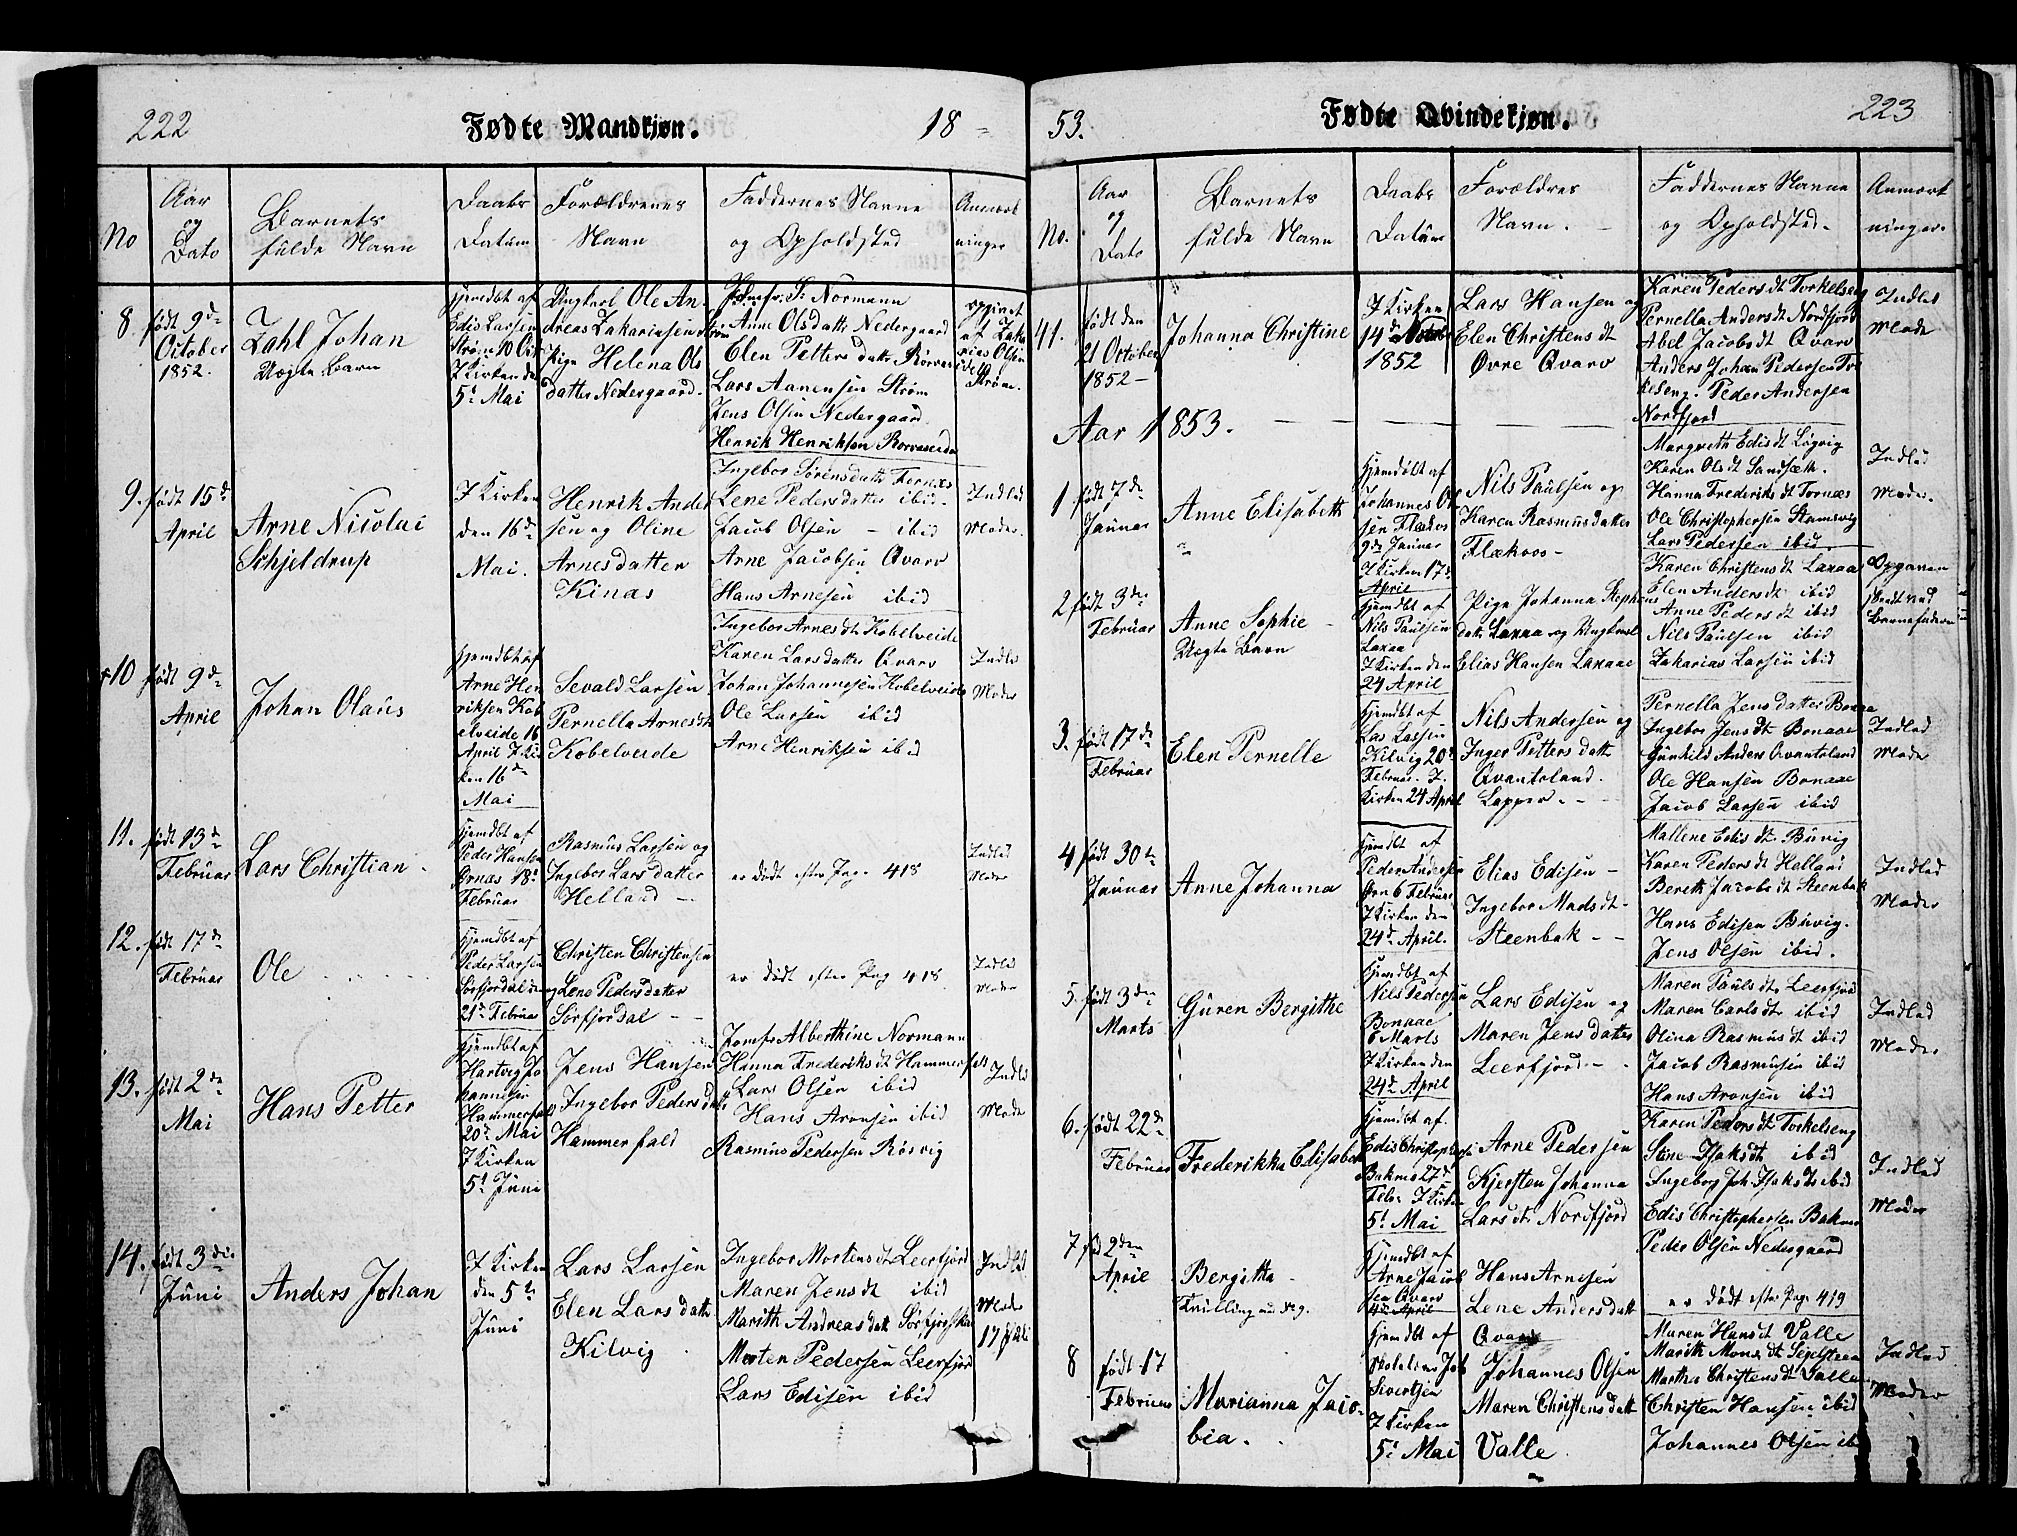 222
Fødte Mandkjøn.
18
No
Aar
og
Dato
Barnets
fulde Navn
Daabs
Datum
Forældrenes
Navn
Faddernes Navne
og Opholdsted
Anmærk
ninger
8
født 9de
October
1852.
Zahl Johan
Uægte Barn
Hjemdbt af
Edis Larsen
Strøm 10 Oct
I Kirken den
5t Mai
Ungkerl Ole An-
dreas Zakariasen Strøm
Pige Helena Ols
datter Nedergaard.
Jomfr. Normann
Anne Olsdattr Nedergaard
Elen Petters datter
Lars Aanensen Strøm
Jens Olsen Nedergaard
Henrik Henriksen
opgivet
af Zaka
rias Olsen
Strøm.
9.
født 15de
April
Arne Nicolai
Schjeldrup
I Kirken
den 16de
Mai.
Henrik Ander
sen og Oline
Arnesdatter
Kinas
Ingebor Sørensdattr Fornæs
Lene Pedersdatter ibid
Jacob Olsen - ibid
Arne Jacobsen Qvarv
Hans Arnesen ibid
Indled
Moder.
10
født 9de
April
Johan Olaus
Hjemdbt af
Arne Hen
riksen Kob
elveide 16
April I Kir
ken 16de
Mai
Sevald Larsen
Pernella Arnesdt
Kobelveide
Ingebor Arnesdt Kobelveide
Karen Larsdatter Qvarv
Johan Johannesen Kobelveide
Ole Larsen ibid
Arne Henriksen ibid
Indled
Moder
11.
født 13de
Februar
Lars Christian
Hjemdbt af
Peder Hansen
Ørnæs 18d
Februar
Rasmus Larsen og
Ingebor Lars datter
Helland
er dødt efter Pag. 418
Indled
Moder
12.
født 17de
Februar
Ole
Hjemdbt af
Peder Larsen
Sørfjordal
21de Februar
Christen Christensen
og Lene Pedersdatter
Sørfjordal
er dødt efter Pag 418.
Indled
Moder
13.
født 2den
Mai
Hans Petter
Hjemdbt af
Hartvig Jo
hannesen
Hammerfald
20de Mai
I Kirken
5t Juni
Jens Hansen
Ingebor Pedersdatt
Hammerfald
Jomfr Alberthine Normann
Hanna Frederiksdt Hammerfald
Lars Olsen ibid
Hans Aronsen ibid
Rasmus Pedersen Røsvig
Indled
Moder
14.
født 3die
Juni
Anders Johan
I Kirken
den 5te
Juni
Lars Larsen
Elen Larsdattr
Kilvig
Ingebor Mortensdt Leerfjord
Maren Jensdt ibid
Marith Andreas datt
Morten Pedersen Leerfjord
Lars Edisen ibid
Indled
Moder
17 Juli
53.
Fødte Qvindekjøn.
223
No.
Aar
og
Dato
Barnets
fulde Navn
Daabs
Datum
Forældres
Navn.
Faddernes Navne
og Opholdsted.
Anmærk
ninger.
41.
født den
21 October
1852
Johanna Christine
I Kirken
14de
1852
Lars Hansen og
Elen Christensdt
Øvre Qvarv
Karen Peders dt Torkelseng
Pernella Andersdt Nordfjord
Abel Jacobsdt Qvarv
Anders Johan Pedersen Tor
kelseng. Peder Andersen
Nordfjord
Indled
Moder
Aar 1853.
1
født 7de
Januar
Anne Elisabeth
Hjemdøbt af
Johannes Ol
sen Flækos
9de Januar
I Kirken 17de
April
Nils Paulsen og
Karen Rasmusdatter
Flækoos
Margreth Edisdt Løgvig
Karen Olsdt Sandsæth.
Hanna Frederiks dt Tornæs
Ole Christophersen Stamsvig
Lars Pedersen ibid.
Indled
Moder.
2
født 3die
Februar
Anne Sophie
Uægte Barn
Hjemdbt af
Nils Paulsen
Laxaa
I Kirken den
24 April
Pige Johanna Stephens
datr Laxaa og Ungkarl
Elias Hansen Laxaae
Karen Christensdt Laxaa
Elen Andersdt ibid
Anne Pedersdt ibid
Nils Paulsen ibid
Zakarias Larsen ibid
3.
født 17de
Februar
Elen Pernelle
Hjemdbt af
Las Lassen
Kilvig 20d
Februar. I
Kirken 24 April
Nils Andersen og
Inger Petters datt
Qvantoland.
Lapper.
Pernella Jens datter Bonaa
Ingebor Jensdt Bonaae
Gunhild Anders Qvantoland
Ole Hansen Bonaae
Jacob Larsen ibid
Indled
Moder
4
født 30te
Januar
Anne Johanna
Hjemdbt af
Peder Andersen
6 Februar
I Kirken den
24de April.
Elias Edisen
Ingebor Madsdt
Steenbak
Mallene Edisdt Buvig
Karen Pedersdt Helland
Bereth Jacobsdt Steenbak
Hans Edisen Buvig.
Jens Olsen ibid.
Indled
Moder
5.
født 3den
Marts
Guren Bergithe
Hjemdbt af
Nils Pedersen
Bonaae
6 Marts
I Kirken den
24de April
Lars Edisen og
Maren Jensdatter
Leerfjord
Maren Paulsdt Leerfjord
Maren Carlsdt ibid
Olina Rasmusdt ibid
Jacob Rasmusen ibid
Hans Aronsen ibid
Indled
Moder
6.
født 22de
Februar
Frederikka Elisabet
Hjemdbt af.
Edis Christophersen
Bakens 27de
Febr. I Kirken
5t Mai
Arne Pedersen
Kjersten Johanna
Larsdt Nordfjord
Karen Pedersdt Torkelseng
Stine Isaksdt ibid
Ingeborg Joh. Isaksdt ibid
Edis Christophersen Baknes
Peder Olsen Nedergaard
Indled
Moder
7
fød 2den
April
Bergitha
Tvilling
Hjemdbt af
Arne Jacob
sen Qvarv
April
Hans Arnesen
Lene Andersdatt
Qvarv
er dødt efter Pag. 419
8
født 17
Februar
Marianna Jaco-
bia.
Hjemdbt af
Skolelærer Job
Sivertsen
I Kirken
5t Mai
Johannes Olsen
Maren Christensdatt
Valle
Maren Hansdt Valle
Marith Monsdt Segelsteen
Marthe Christensdt Valle
Christen Hansen ibid
Johannes Olsen ib
Indled
Moder